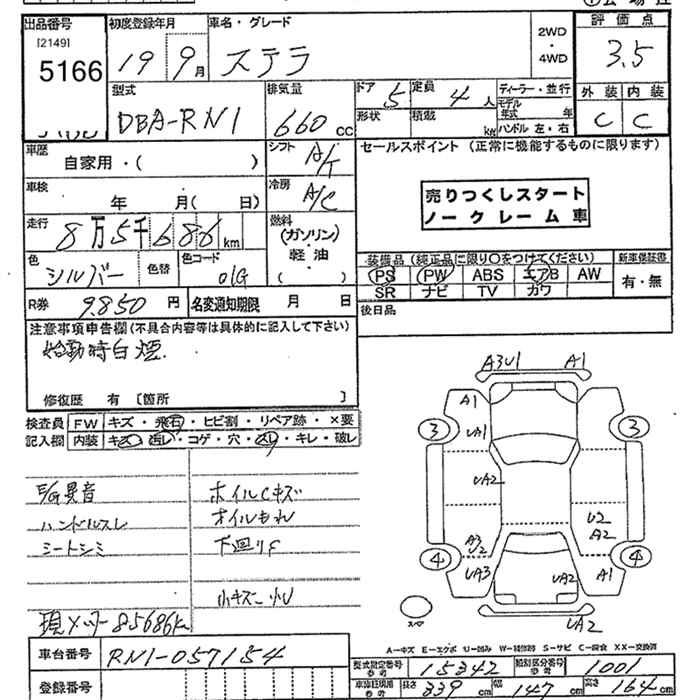 出品番号
[2149]
5166
初度登録年月
19 9月
車名・グレード
ステラ
2WD
・
4WD
評価点
3.5
外装 内装
C C
型式
DBA-RN1
排気量
660 CC
ドア 5
定員 4 人
形状
積載 kg
ディーラー・並行
モデル年式 年
ハンドル 左・右
車歴
自家用・( )
シフト A/T
セールスポイント (正常に機能するものに限ります)
売りつくしスタート
ノークレーム車
車検 年 月( 日)
冷房 A/C
走行
8万5千686km
燃料
(ガソリン)
軽・油
( )
色 シルバー
色替
色コード 01G
装備品 (純正品に限り○をつけてください)
新車保証書
PS PW ABS エアB AW
有・無
SR ナビ TV カワ
R券 9.850 円
名変通知期限 月 日
後日品
注意事項申告欄(不具合内容等は具体的に記入して下さい)
始動時白煙
修復歴 有 〔箇所 〕
検査員
記入欄
FW キズ・飛石・ヒビ割・リペア跡・×要
内装 キズ・汚レ・コゲ・穴・スレ・キレ・破レ
E/G異音
ハンドルスレ
シートシミ
ホイルCキズ
オイルもれ
下廻りF
小キズ 小U
現メーター85686k
A3U1 A1
A1
3 3
UA1
UA2
U2
A2
A3
U2
4 4
UA3 UA2 A1
UA2
A−キズ E−エクボ U−凹み W−補修跡 S−サビ C−腐食 XX−交換済
車台番号 RN1-057154
登録番号
型式指定番号 参考 15342
類別区分番号 参考 1001
車検証現用 参考 長さ 339 cm 幅 147 cm 高さ 164 cm